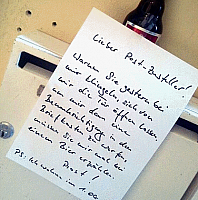 Lieber Post-Zusteller!
Warum Sie gestern bei
mir klingeln, sich von
mir die Tür öffnen lassen
um mir dann eine
Benachrichtigung in den
Briefkasten zu werfen
müssen Sie mir mal bei
einem Bier erzählen.
Prost!
PS: Ich wohne im 1. OG